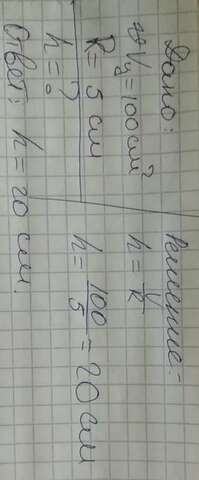 Дано:
Vц = 100 см²
R = 5 см
h = ?
Решение:
h = V/R
h = 100/5 = 20 см
Ответ: h = 20 см.